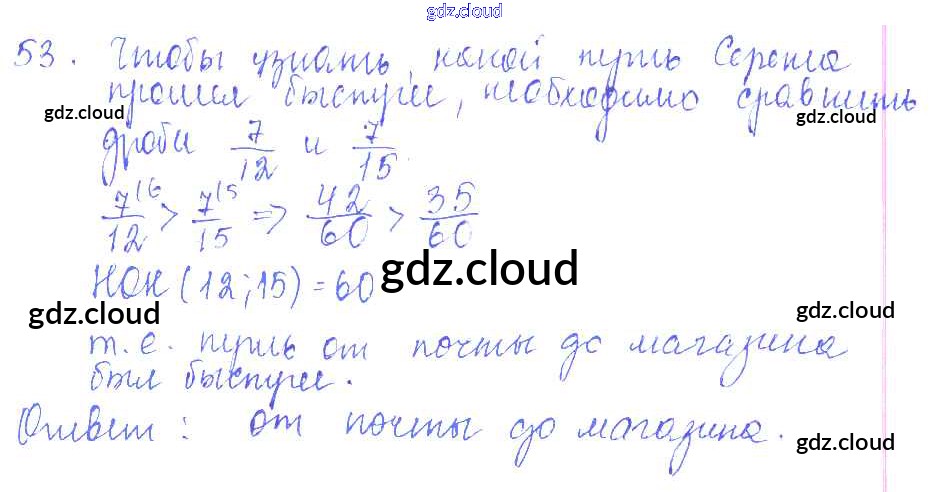 gdz.cloud
53. Чтобы узнать, какой путь Сережа
прошел быстрее, необходимо сравнить
gdz.cloud gdz.cloud
дроби 7/12 и 7/15.
7/12 (6 > 7/15 (5 => 42/60 > 35/60
НОК (12; 15) = 60
gdz.cloud
gdz.cloud gdz.cloud
т.е. путь от почты до магазина
был быстрее.
gdz.cloud
Ответ: от почты до магазина.
gdz.cloud